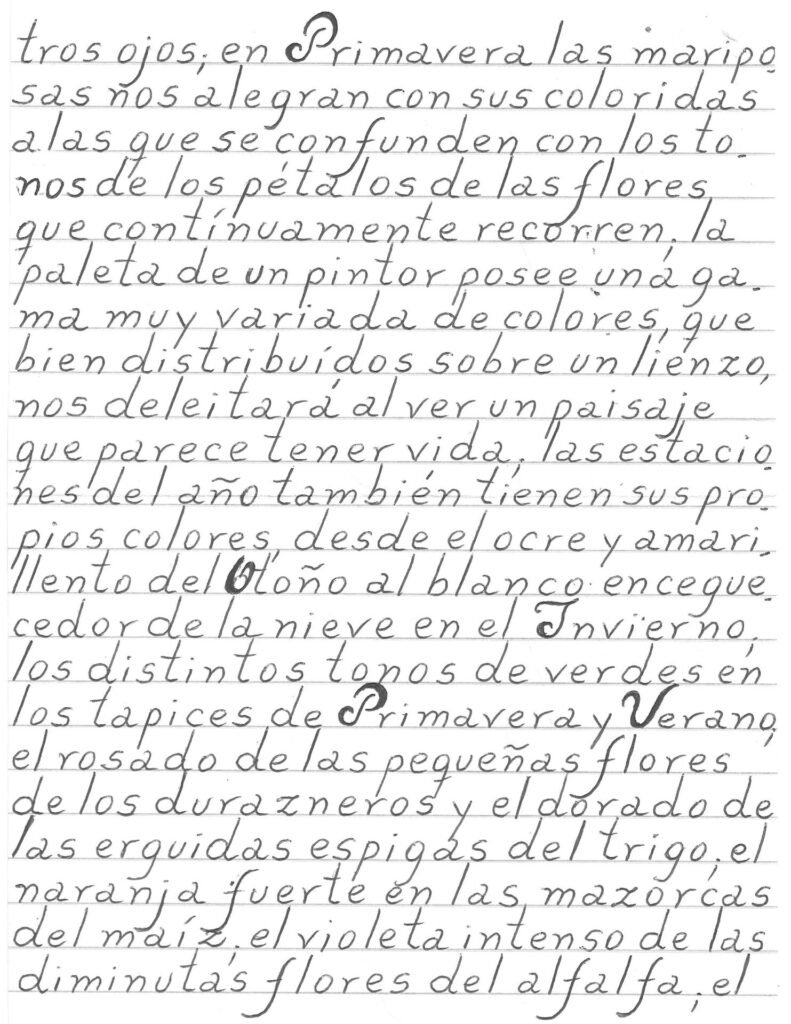 tros ojos; en Primavera las maripo_
sas nos alegran con sus coloridas
alas que se confunden con los to_
nos de los pétalos de las flores,
que contínuamente recorren; la
paleta de un pintor posee una ga_
ma muy variada de colores, que
bien distribuídos sobre un lienzo,
nos deleitará al ver un paisaje
que parece tener vida; las estacio_
nes del año también tienen sus pro_
pios colores, desde el ocre y amari_
llento del Otoño al blanco encegue_
cedor de la nieve en el Invierno;
los distintos tonos de verdes en
los tapices de Primavera y Verano;
el rosado de las pequeñas flores
de los durazneros y el dorado de
las erguidas espigas del trigo; el
naranja fuerte en las mazorcas
del maíz; el violeta intenso de las
diminutas flores del alfalfa; el